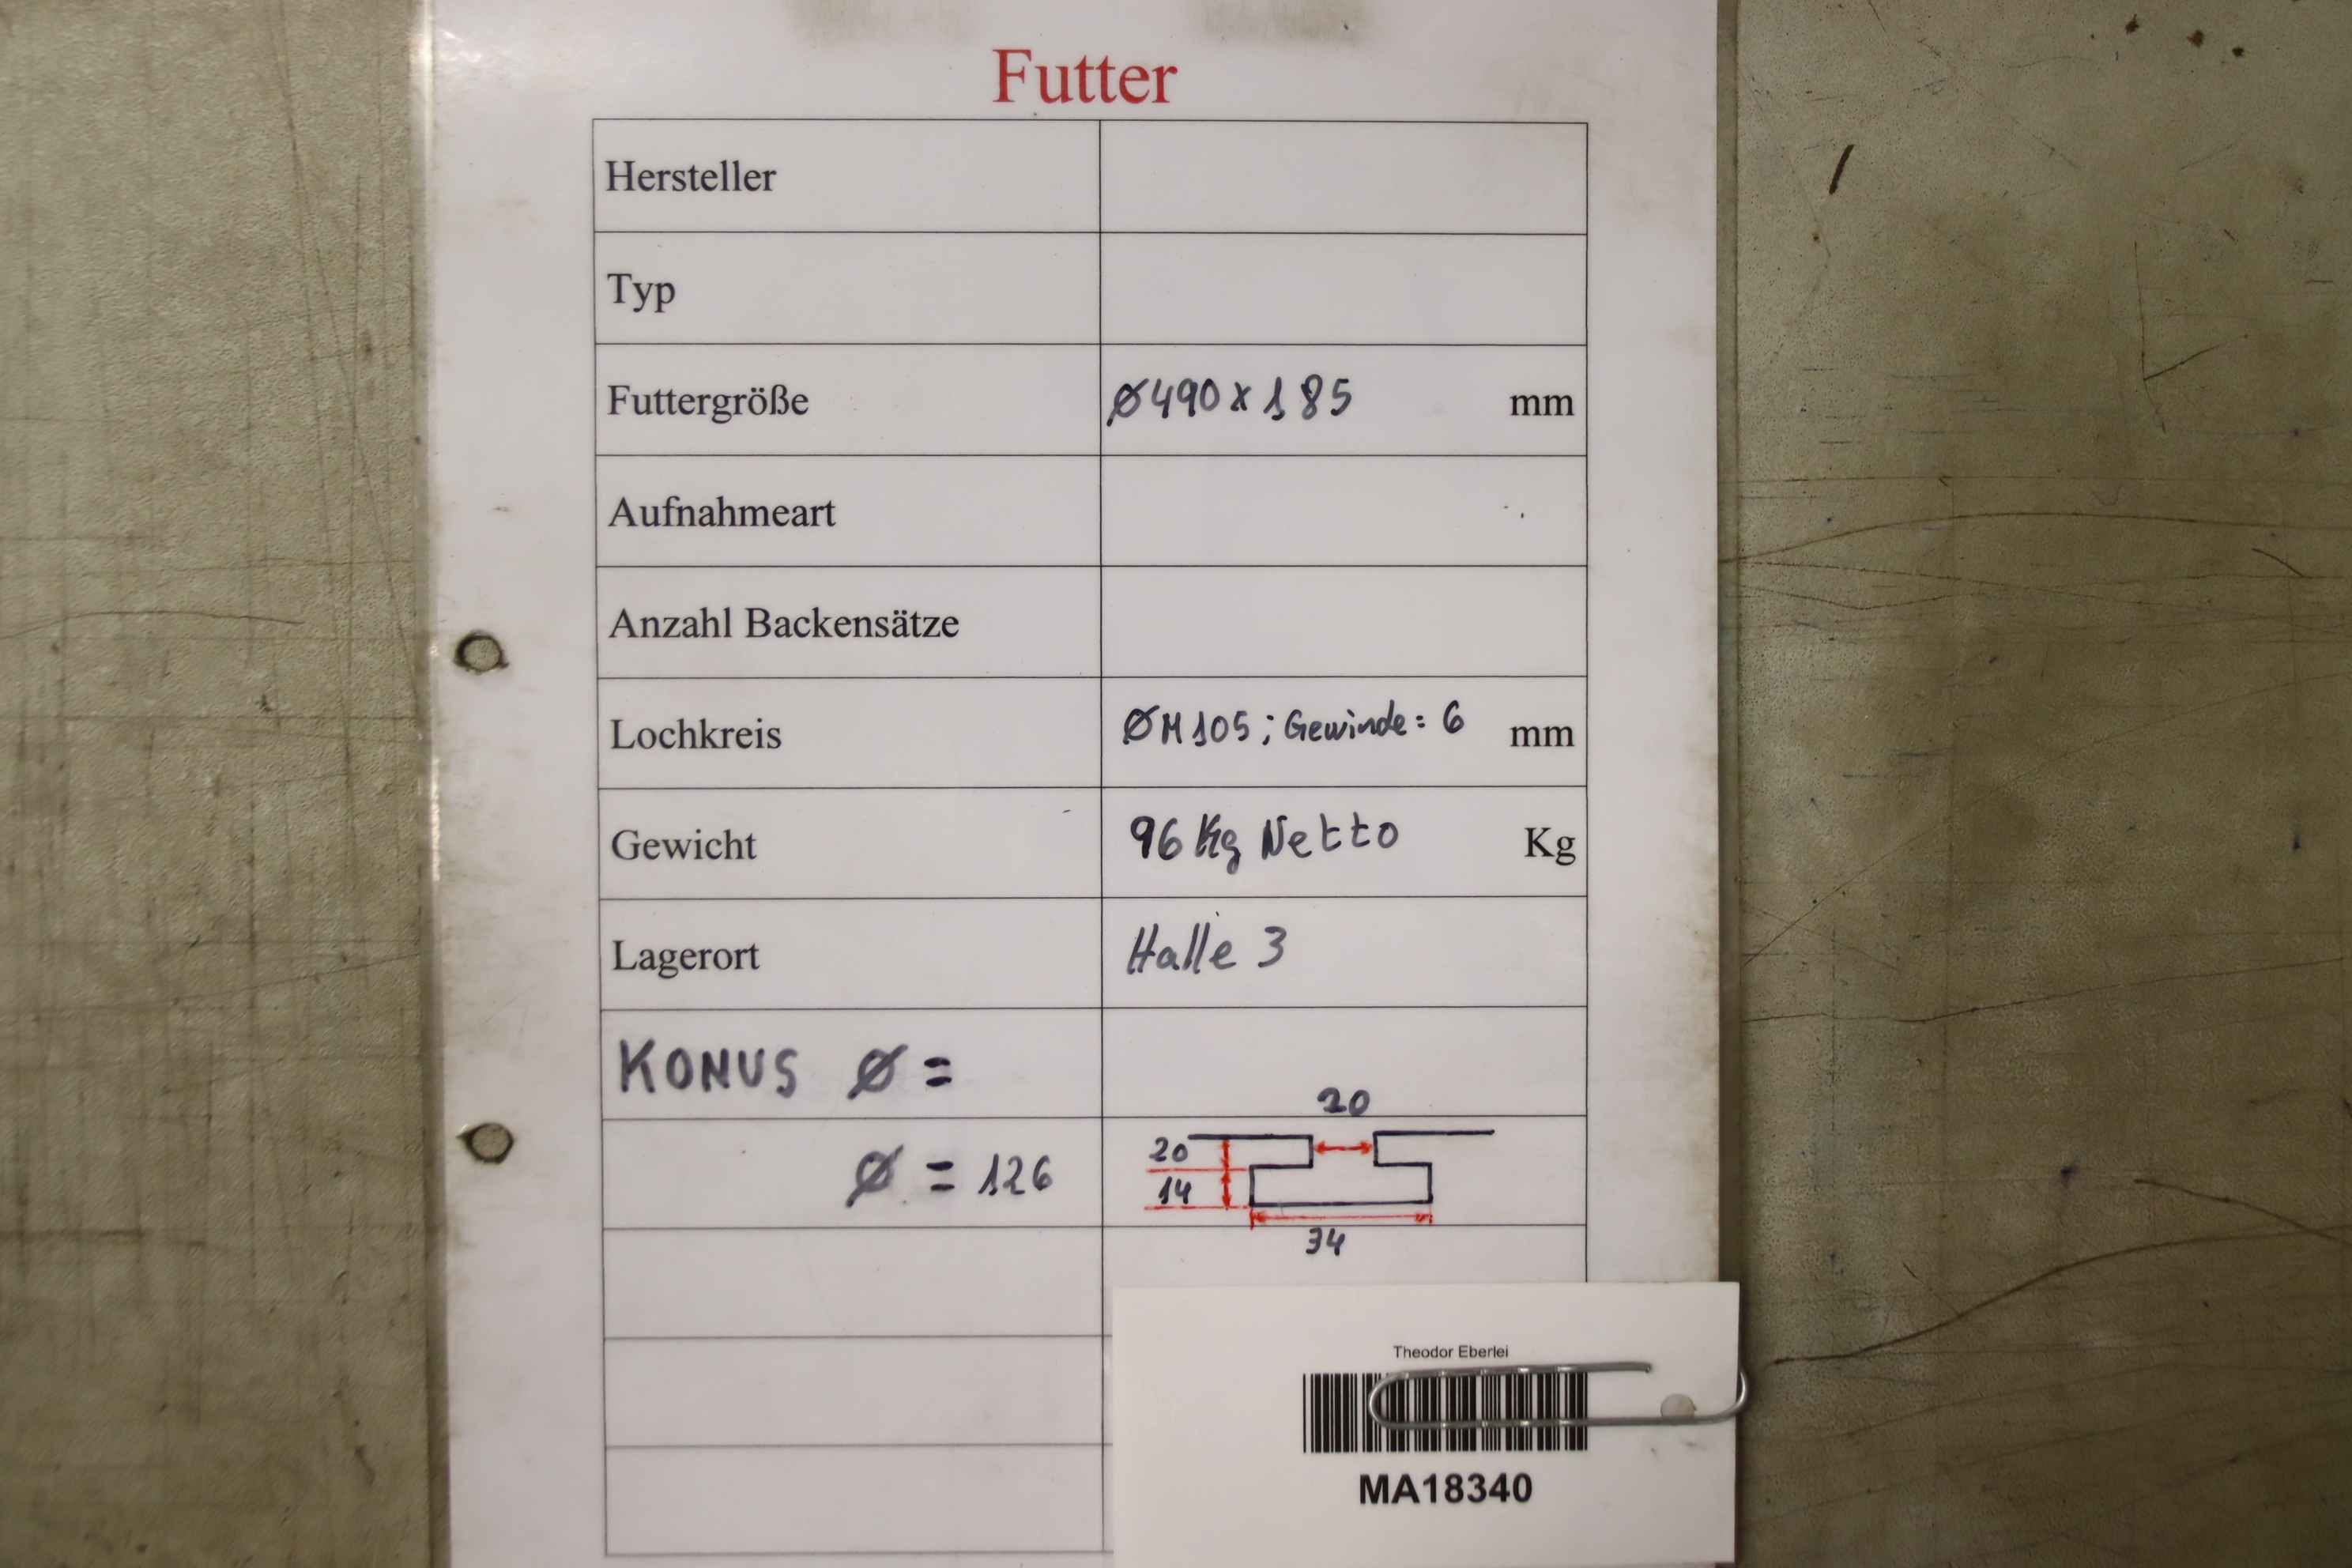 Futter
Hersteller
Typ
Futtergröße Ø490 x 185 mm
Aufnahmeart
Anzahl Backensätze
Lochkreis ØM105; Gewinde: 6 mm
Gewicht 96 Kg Netto Kg
Lagerort Halle 3
KONUS Ø =
Ø = 126
20
20
14
34
Theodor Eberlei
MA18340